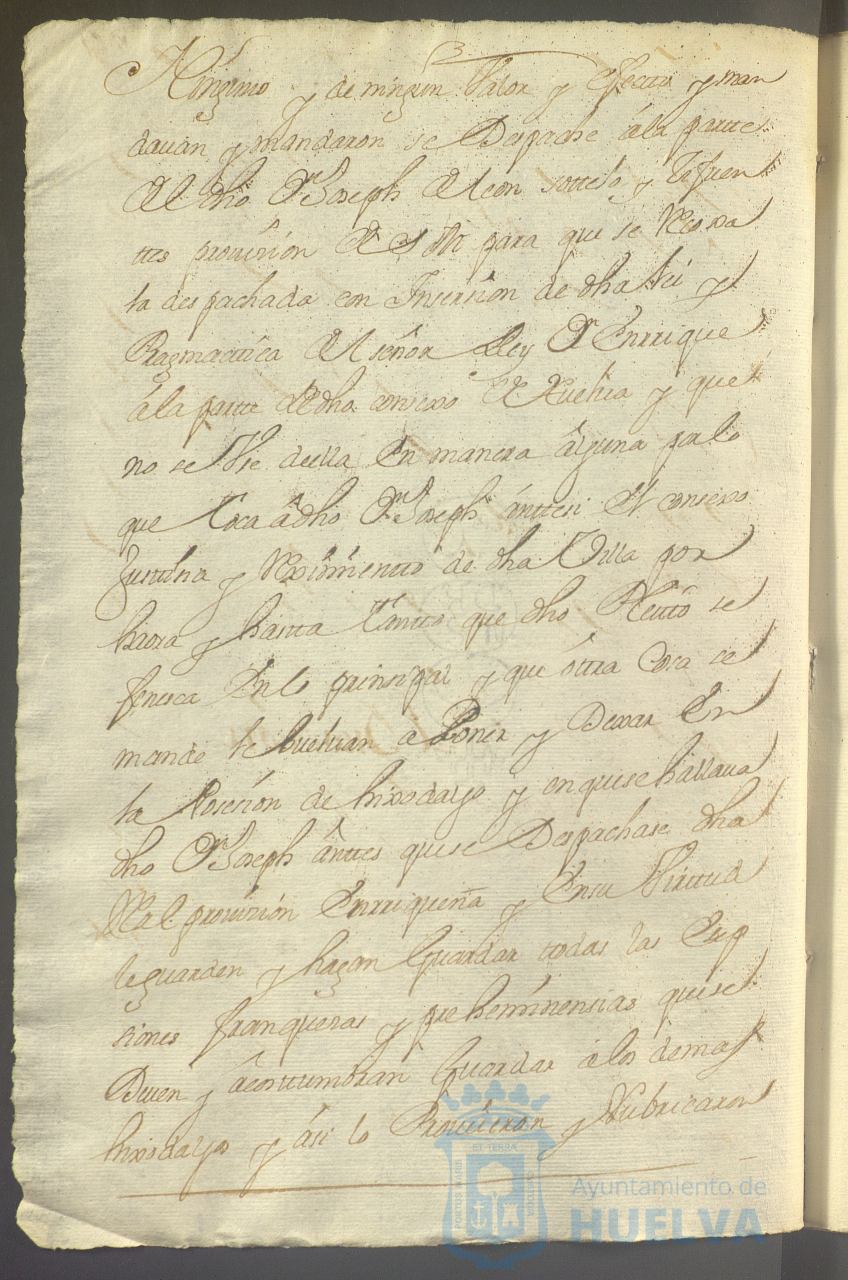 Ninguno y de ningun Valor y efecto y man
dauan y mandaron se Despache â la partte
del dho Dn Joseph de leon sottelo y Zifuen
ttes prouision de S M para que se Recoxa
la despachada con Insersion de dha lei y
Pragmactica del señor Rey Dn Enrrique
â la partte de dho consexo de Huelua y que
no se Vse de ella En manera âlguna por lo
que toca â dho Dn Joseph ântte si el consexo
Justisia y Reximientto de dha Villa por
haora y hasta tantto que dho Pleitto se
fenesca En lo prinsipal y que ôttra Cosa se
mande le bueluan a Poner y Dexar En
la Posesion de hixodalgo y en que se hallaua
dho Dn Joseph ânttes que se Despachase dha
Real prouision Enrriqueña y En su Virttud
le guarden y hagan Guardar todas las Esep
siones franquezas y preheminensias que se
Deuen y âcosttumbran Guardar â los demas
hixosdalgo y âsi lo Prouieron y Rubricaron
PORTUS MARIS
ET TERRÆ
CUSTODIA
Ayuntamiento de
HUELVA